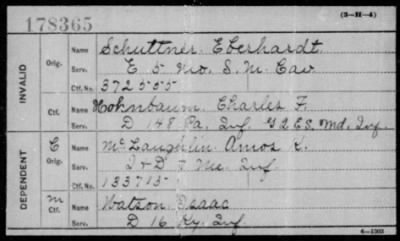 178365
(3-H-4)
INVALID
Orig. Name Schuttner Eberhardt
Serv. E 5 Mo. S. M. Cav
Ctf. No. 372555
Ctf. Name Hohnbaum Charles F.
Serv. D 148 Pa. Inf. G 2 E.S. Md. Inf.
DEPENDENT
C Orig. Name McLaughlin Amos K.
Serv. I & D Me. Inf
Ctf. No. 133715
M Ctf. Name Watson Isaac
Serv. D 16 Ky. Inf
6-1303